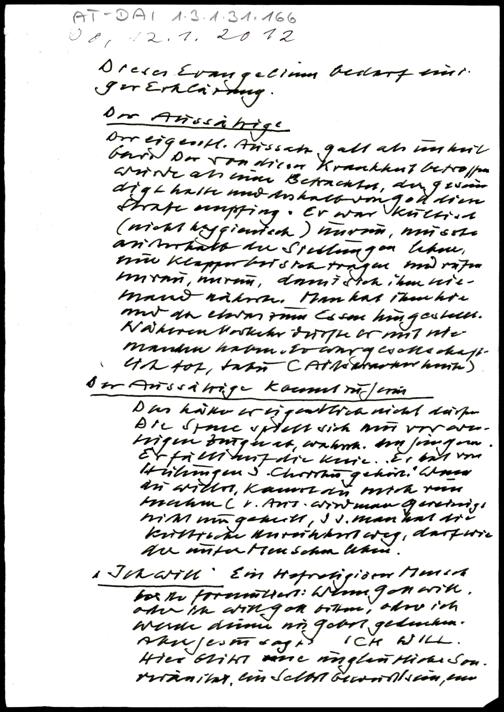 AT-DAI 1.3.1.31.166
08, 12.1.2012
Dieses Evangelium bedarf eini-
ger Erklärung.
Der Aussätzige
Der eigentl. Aussatz galt als unheil
bar. Der von dieser Krankheit betroffen
wurde als einer Betrachtet, der gesün
digt hatte und deshalb von Gott diese
Strafe empfing. Er war kultisch
(nicht hygienisch) unrein, musste
ausserhalb der Siedlungen leben,
eine Klapper bei sich tragen und rufen
unrein, unrein, damit sich ihm nie-
mand näherte. Man hat ihm hie
und da etwas zum Essen hingestellt.
Näheren Verkehr durfte er mit nie-
manden haben. Er war gesellschaft-
lich tot, tabu (Aidskranker heute)
Der Aussätzige kommt zu Jesus
Das hätte er eigentlich nicht dürfen
Die Szene spielt sich nur vor we-
nigen Zeugen ab, wahrsch. den Jüngern.
Er fällt auf die Knie. Er hat von
Heilungen J. Christi gehört. Wenn
du willst, kannst du mich rein
machen (v. Auss. wird man gereinigt
nicht nur geheilt, d.h. man hat die
kultische Unreinheit weg, darf wie
der unter Menschen leben.
"Ich will" Ein tiefreligiöser Mensch
hätte formuliert: Wenn Gott will,
oder ich will Gott bitten, oder ich
werde deiner im Gebet gedenken.
Aber Jesus sagt ICH WILL.
Hier blitzt eine unglaubliche Sou-
veränität, ein Selbstbewusstsein, ein